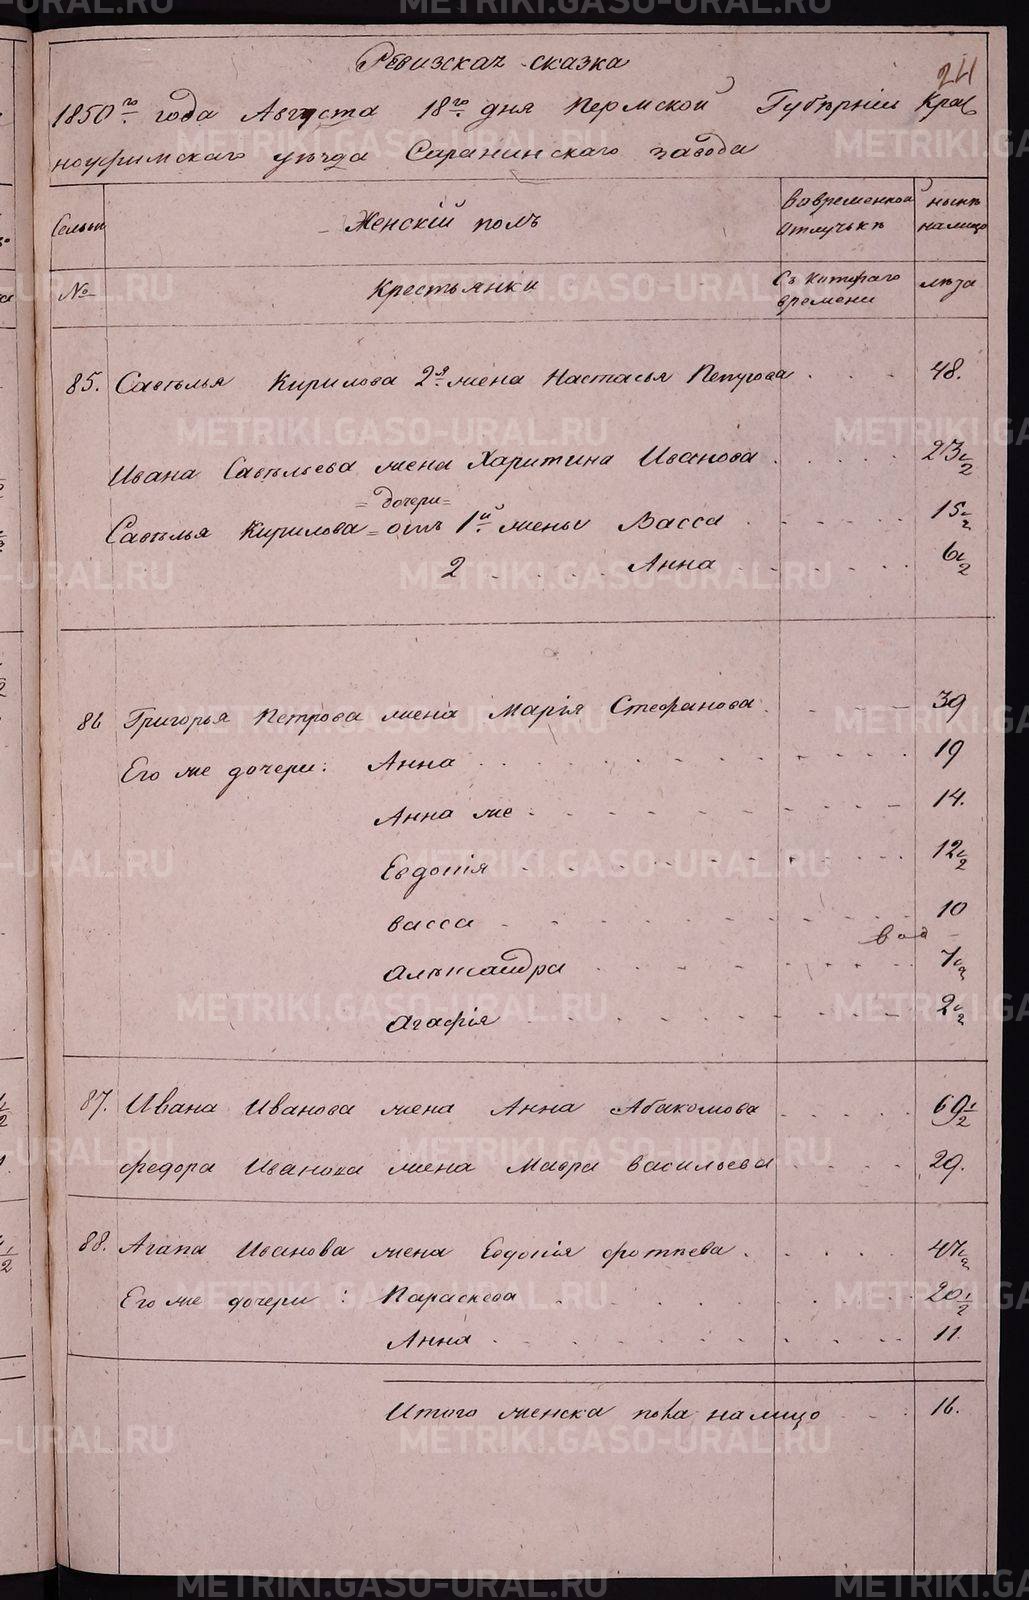 Ревизская сказка
24
1850го года Августа 18го дня Пермской Губернии Крас
ноуфимскаго уезда Саранинскаго завода
Семьи
Женскiй полъ
Вовременной отлучькѣ
ныне налицо
№
Крестьянки
Съ которого времени
лѣта
85. Савѣлья Кирилова 2я жена Настасья Петрова 48.
Ивана Савѣльева жена Харитина Иванова 23 1/2
=дочери=
Савѣлья Кирилова = отъ 1й жены Васса 15 1/2
2 Анна 6 1/2
86 Григорья Петрова жена Марiя Стефанова 39
Его же дочери: Анна 19
Анна же 14.
Евдокiя 12 1/2
Васса 10
Александра 7 1/2
Агафiя 2 1/2
87. Ивана Иванова жена Анна Абакомова 69 1/2
Федора Иванова жена Мавра Васильева 29.
88. Агапа Иванова жена Евдокiя Фотиева 47 1/2
Его же дочери: Параскева 20 1/2
Анна 11.
Итого женска пола налицо 16.
METRIKI.GASO-URAL.RU